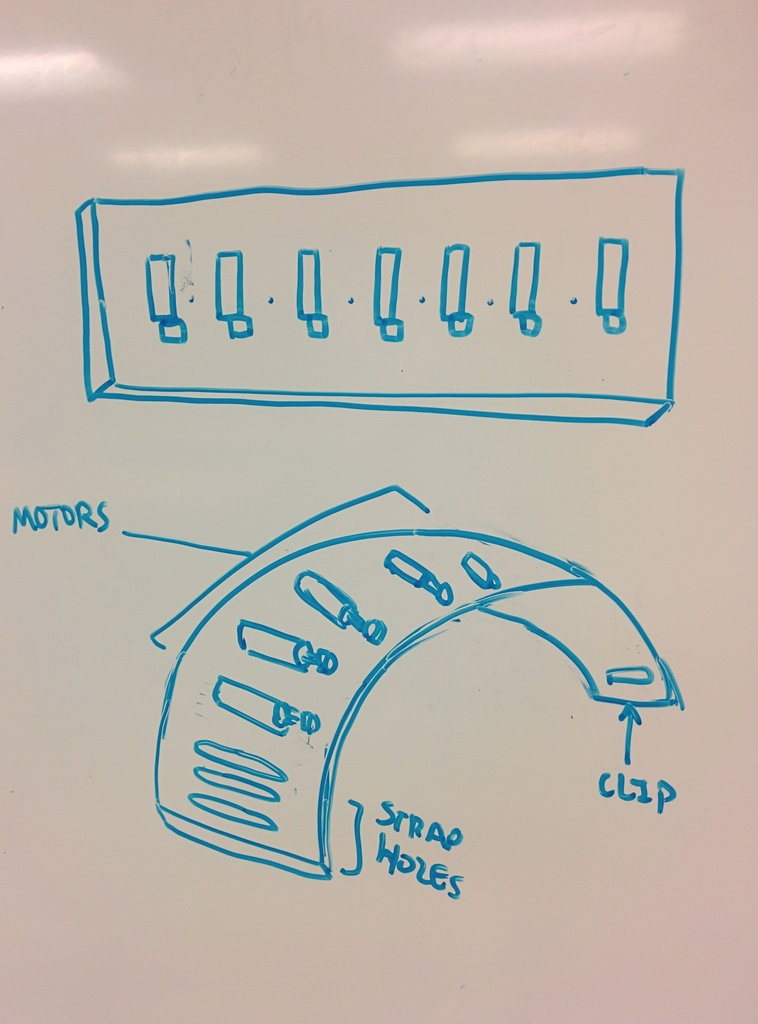 MOTORS
CLIP
STRAP
HOLES